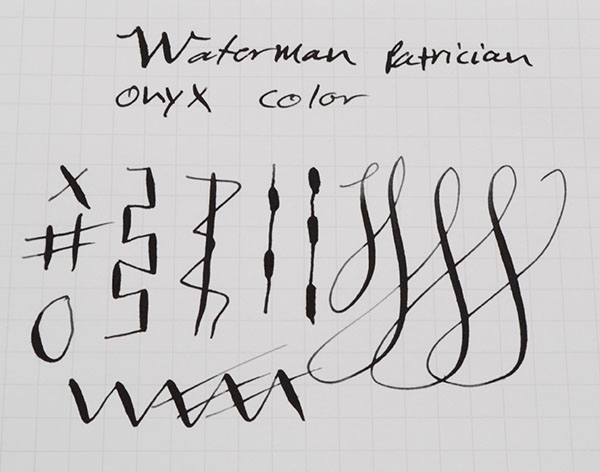 Waterman Patrician
onyx color
x
#
O